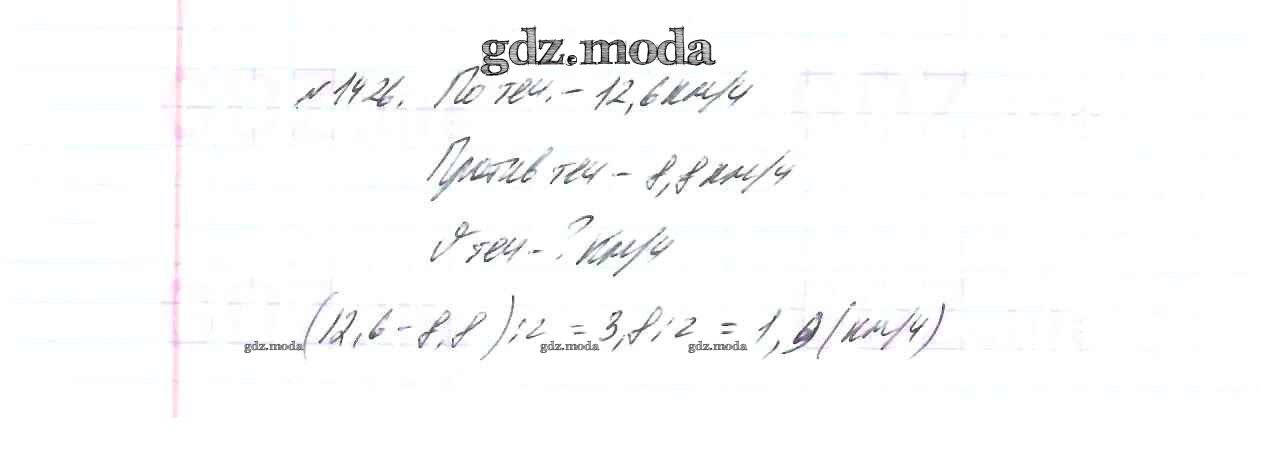 gdz.moda
№1426. По теч. - 12,6 км/ч
Против теч - 8,8 км/ч
υ теч - ? км/ч
(12,6 - 8,8) : 2 = 3,8 : 2 = 1,9 (км/ч)
gdz.moda gdz.moda gdz.moda